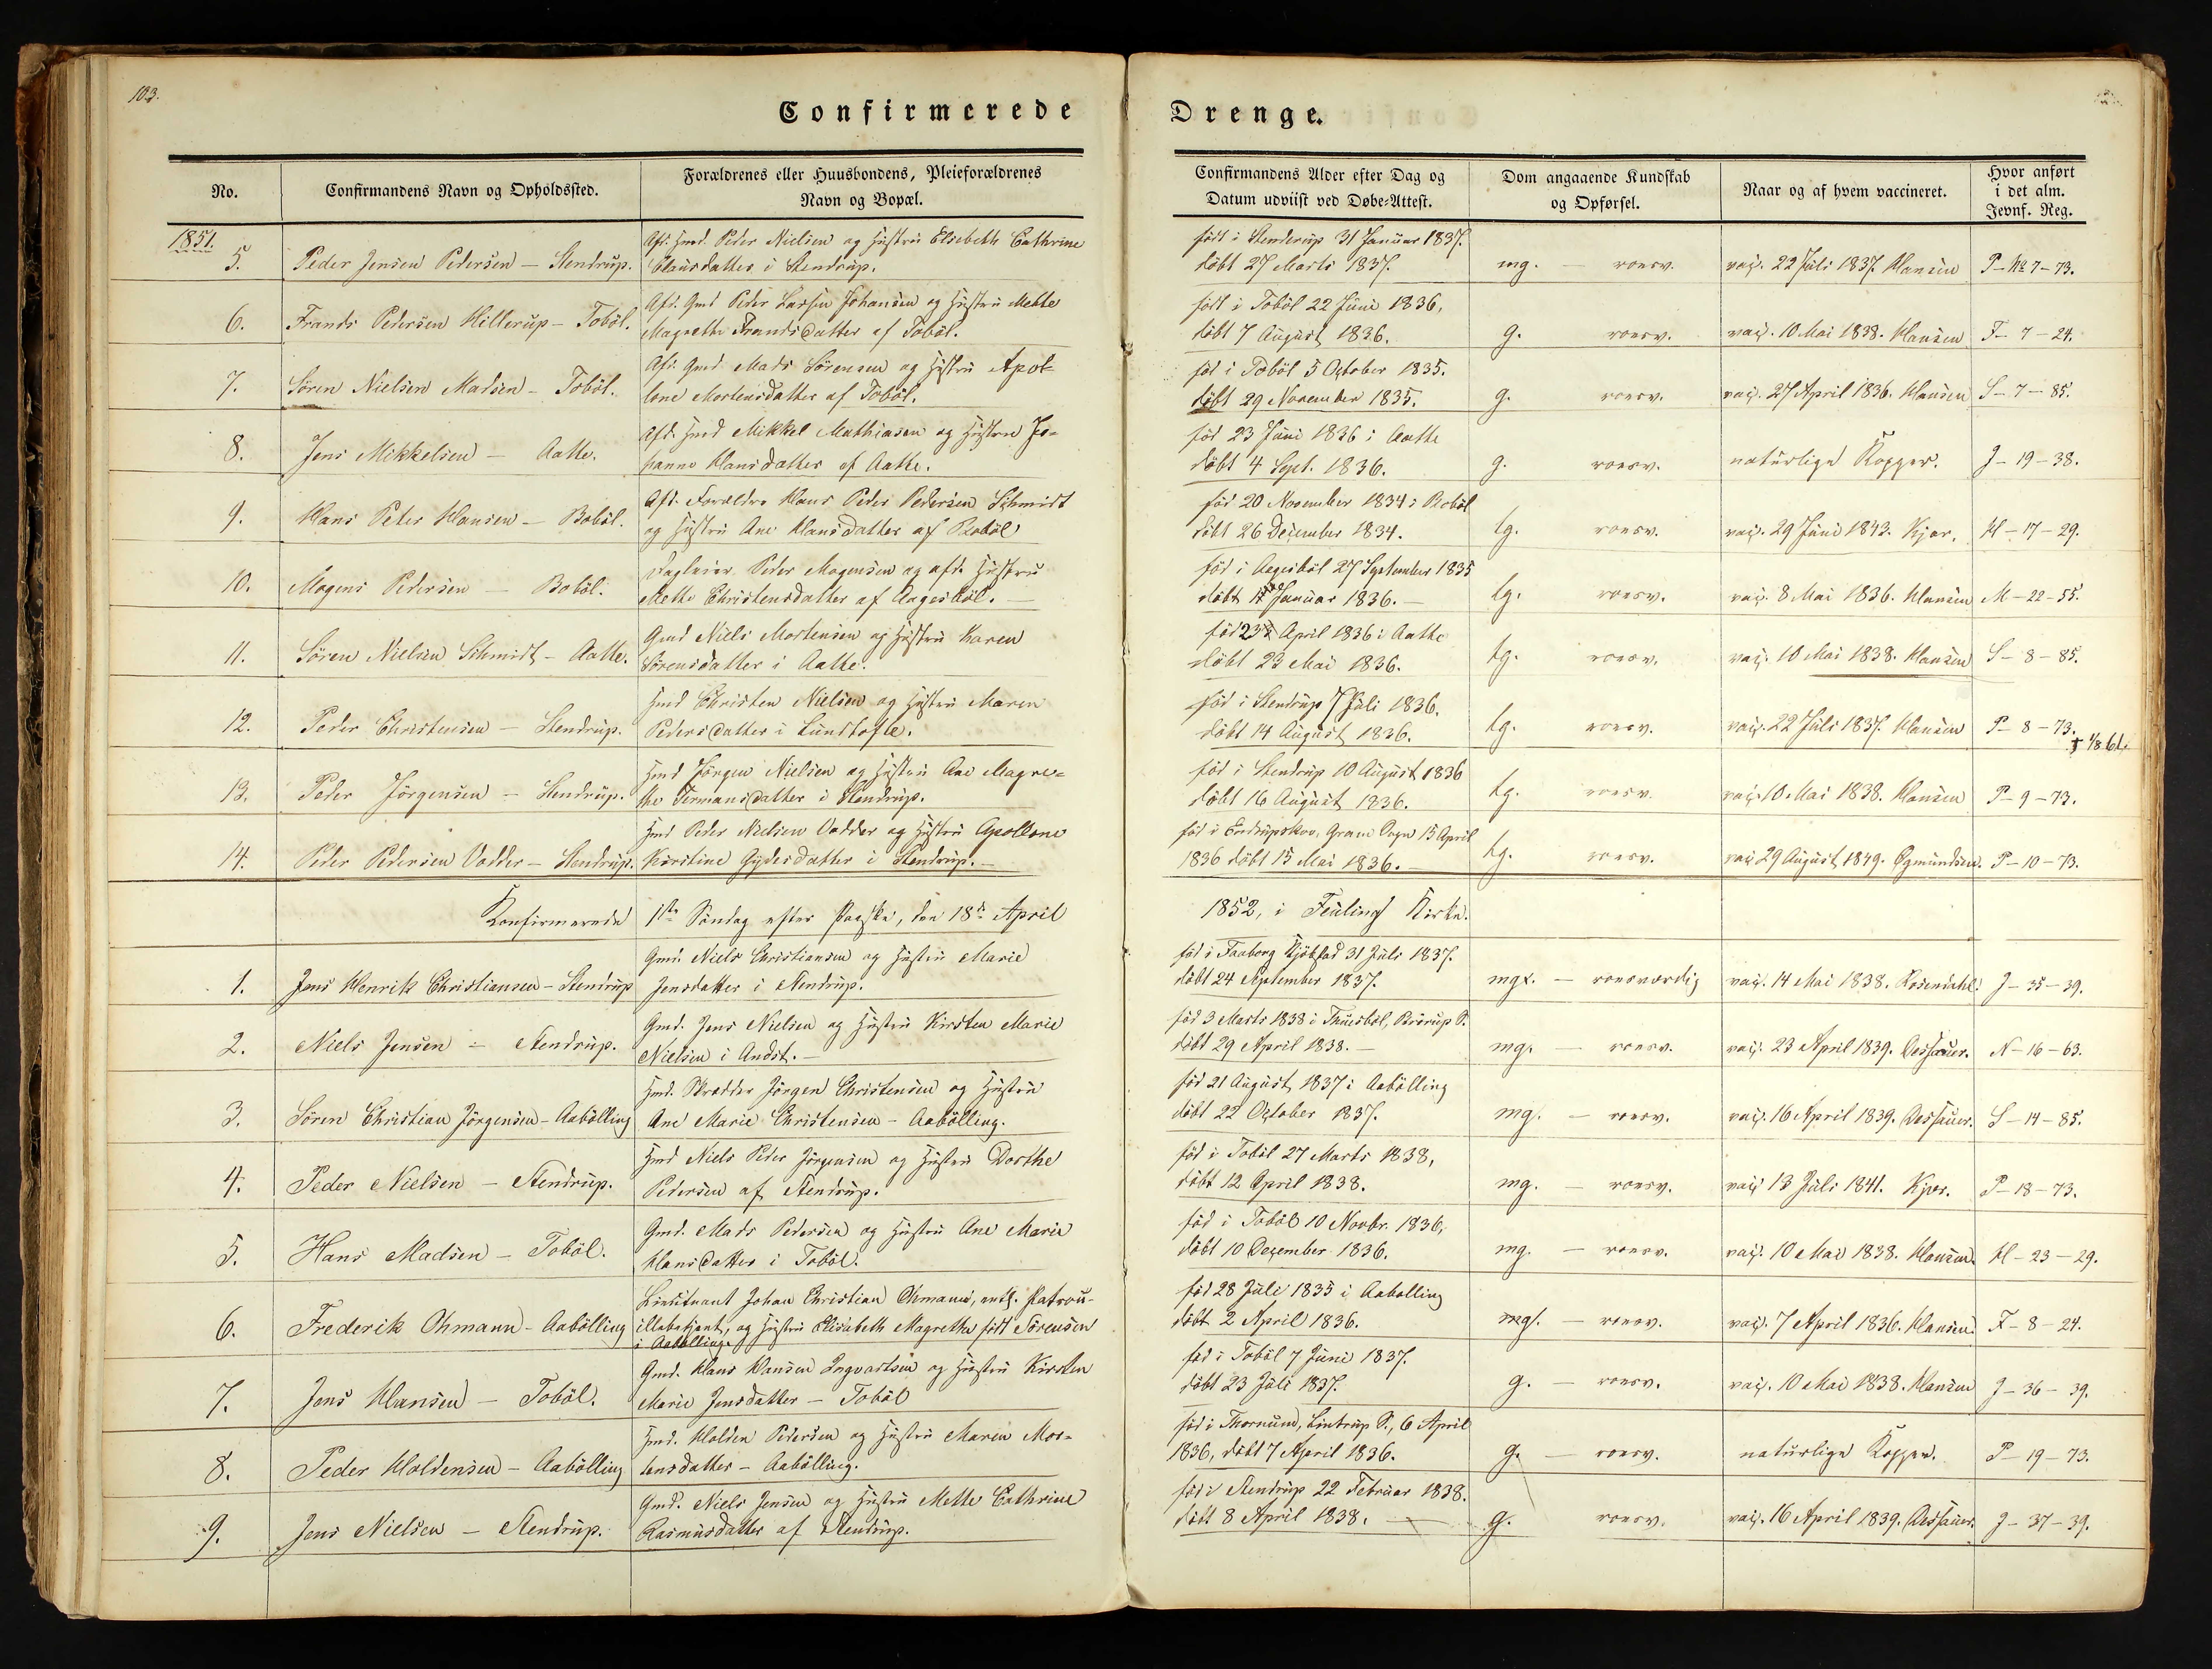 103.
Confirmerede Drenge.
No.
Confirmandens Navn og Opholdssted.
Forældrenes eller Huusbondens, Pleieforældrenes
Navn og Bopæl.
Confirmandens Alder efter Dag og
Datum udviist ved Døbe-Attest.
Dom angaaende Kundskab
og Opførsel.
Naar og af hvem vaccineret.
Hvor anført
i det alm.
Jevnf. Reg.
1851.
5. Peder Jensen Pedersen – Stendrup.
Afd. Hmd. Peder Nielsen og Hustru Elsebeth Cathrine
Clausdatter i Stendrup.
født i Stenderup 31 Januar 1837.
döbt 27 Marts 1837.
mg. – roesv.
vaç. 22 Juli 1837. Hansen
P – No 7 – 73.
6. Frands Pedersen Hillerup – Toböl.
Afd. Gmd Peder Larsen Johansen og Hustru Mette
Magrethe Frandsdatter af Toböl.
født i Toböl 22 Juni 1836,
döbt 7 August 1836.
g. roesv.
vaç. 10 Mai 1838. Hansen
F – 7 – 24.
7. Sören Nielsen Madsen – Toböl.
Afd. Gmd. Mads Sörensen og Hstru Apol-
lone Mortensdatter af Toböl.
född i Toböl 5 October 1835.
döbt 29 November 1835.
g. roesv.
vaç. 27 April 1836. Hansen
S – 7 – 85.
8. Jens Mikkelsen – Aatte.
Afd. Hmd Mikkel Mathiasen og Hustru Jo-
hanne Hansdatter af Aatte.
föd 23 Juni 1836 i Aatte
döbt 4 Sept. 1836.
g. roesv.
naturlige Kopper.
J – 19 – 38.
9. Hans Peter Hansen – Boböl.
Afd. Forældre Hans Peder Pedersen Schmidt
og Hustru Ane Hansdatter af Boböl
föd 20 November 1834 i Boböl
döbt 26 December 1834.
tg. roesv.
vaç. 29 Juni 1843. Kjær.
H – 17 – 29.
10. Mogens Pedersen – Boböl.
Dagleier Peder Mogensen og afd. Hustru
Mette Christensdatter af Aagesböl. –
föd i Aagesböl 27 September 1835
döbt Januar 1836. –
tg. roesv.
vaç. 8 Mai 1836. Hansen
M – 22 – 55.
11. Sören Nielsen Schmidt – Aatte.
Gmd Niels Mortensen og Hustru Karen
Sörensdatter i Aatte.
föd 23 April 1836 i Aatte
döbt 23 Mai 1836.
tg. roesv.
vaç. 10 Mai 1838. Hansen
S – 8 – 85.
12. Peder Christensen – Stendrup.
Hmd Christen Nielsen og Hustru Maren
Pedersdatter i Lundtofte.
föd i Stendrup 7 Juli 1836.
döbt 14 August 1836.
tg. roesv.
vaç. 22 Juli 1837. Hansen
P – 8 – 73.
13. Peder Jörgensen – Stendrup.
Hmd Jörgen Nielsen og Hustru Ane Magre-
the Termansdatter i Stendrup.
föd i Stendrup 10 August 1836
döbt 16 August 1836.
tg. roesv.
vaç. 10 Mai 1838. Hansen
P – 9 – 73.
14. Peder Pedersen Vodder – Stendrup.
Hmd Peder Nielsen Vodder og Hustru Apollone
Kirstine Gydesdatter i Stendrup. –
föd i Endrupskov, Gram Sogn 15 April
1836 döbt 15 Mai 1836. –
tg. roesv.
vaç 29 August 1849. Ogmundsen.
P – 10 – 73.
Konfirmerede 1ste Söndag efter Paaske, den 18de April 1852, i Føuling Kirke.
1. Jens Henrik Christiansen – Stendrup
Gmd. Niels Christiansen og Hustru Marie
Jensdatter i Stendrup.
föd i Faaborg Kjöbstad 31 Juli 1837.
döbt 24 September 1837.
mgx. – roesværdig
vaç. 14 Mai 1838. Rosendahl.
J – 35 – 39.
2. Niels Jensen – Stendrup.
Gmd. Jens Nielsen og Hustru Kirsten Marie
Nielsen i Andst. –
föd 3 Marts 1838 i Thuesböl, Brörup S.
döbt 29 April 1838. –
mg. – roesv.
vaç. 23 April 1839. Dessauer.
N – 16 – 63.
3. Sören Christian Jörgensen – Aabölling
Hmd. Skrædder Jörgen Christensen og Hustru
Ane Marie Christensen – Aabölling.
föd 21 August 1837 i Aabölling
döbt 22 October 1837.
mg. – roesv.
vaç. 16 April 1839. Dessauer.
S – 14 – 85.
4. Peder Nielsen – Stendrup.
Hmd Niels Peder Jörgensen og Hustru Dorthe
Pedersen af Stendrup.
föd i Toböl 27 Marts 1838,
döbt 12 April 1838.
mg. – roesv.
vaç 13 Juli 1841. Kjær.
P – 18 – 73.
5. Hans Madsen – Toböl.
Gmd. Mads Pedersen og Hustru Ane Marie
Hansdatter i Toböl.
föd i Toböl 10 Novbr. 1836,
döbt 10 December 1836.
mg. – roesv.
vaç. 10 Mai 1838. Hansen.
H – 23 – 29.
6. Frederik Ohmann – Aabölling
Lieutenant Johan Christian Ohmann, Patrou-
illebetjent, og Hustru Elisabeth Magrethe født Sörensen
i Aabölling.
föd 28 Juli 1835 i Aabolling
döbt 2 April 1836.
mg. – roesv.
vaç. 7 April 1836. Hansen.
F – 8 – 24.
7. Jens Hansen – Toböl.
Gmd. Hans Hansen Ingvartsen og Hustru Kirsten
Marie Jensdatter – Toböl
föd i Toböl 7 Juni 1837.
döbt 23 Juli 1837.
g. – roesv.
vaç. 10 Mai 1838. Hansen
J – 36 – 39.
8. Peder Holdensen – Aabölling
Hmd. Holden Pedersen og Hustru Maren Mor-
tensdatter – Aabölling.
föd i Thornum, Lintrup S., 6 April
1836, döbt 7 April 1836.
g. – roesv.
naturlige Kopper.
P – 19 – 73.
9. Jens Nielsen – Stendrup.
Gmd. Niels Jensen og Hustru Mette Cathrine
Rasmusdatter af Stendrup.
föd i Stendrup 22 Februar 1838.
döbt 8 April 1838. –
g. roesv.
vaç. 16 April 1839. Dessauer.
J – 37 – 39.